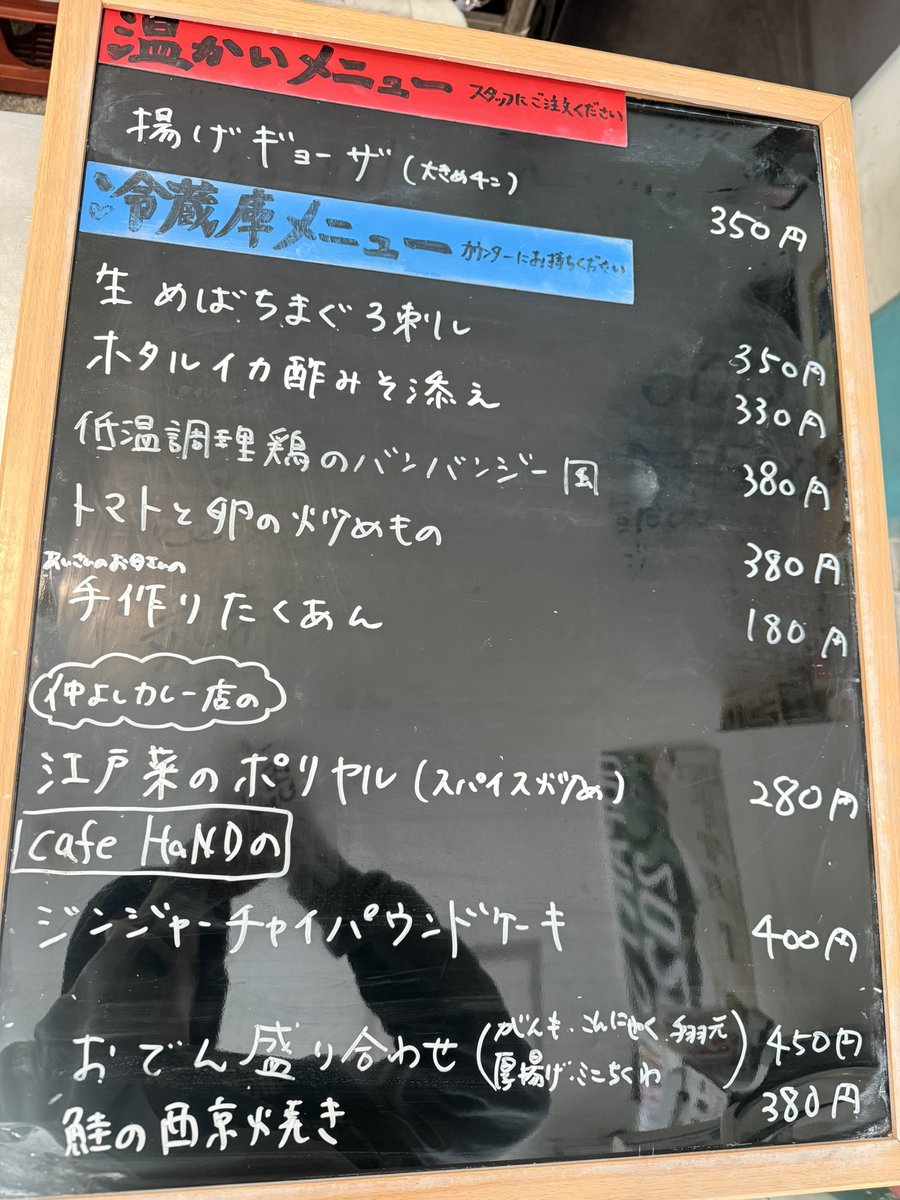 温かいメニュー スタッフにご注文ください
揚げギョーザ(大きめ4コ) 350円
冷蔵庫メニュー カウンターにお持ちください
生めばちまぐろ刺し 350円
ホタルイカ酢みそ添え 330円
低温調理鶏のバンバンジー風 380円
トマトと卵の炒めもの 380円
あいさいのお母さんの
手作りたくあん 180円
仲よしカレー店の
江戸菜のポリヤル(スパイス炒め) 280円
cafe HaNDの
ジンジャーチャイパウンドケーキ 400円
おでん盛り合わせ(がんも・こんにゃく 450円
厚揚げ・ミニちくわ)
鮭の西京焼き 380円